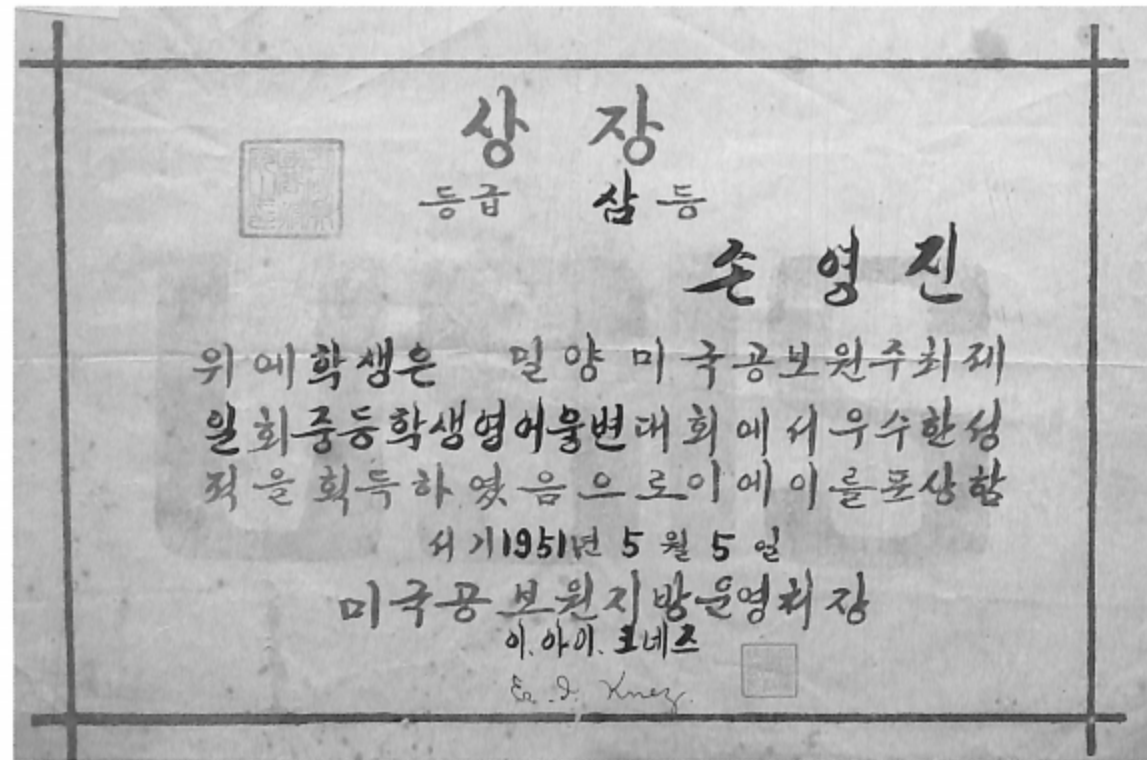 상 장
등급 삼등
손영진
위에학생은 밀양미국공보원주최제
일회중등학생영어웅변대회에서우수한성
적을획득하였음으로이에이를포상함
서기1951년 5월 5일
미국공보원지방운영처장
이.아이.크네즈
E. I. Knez.